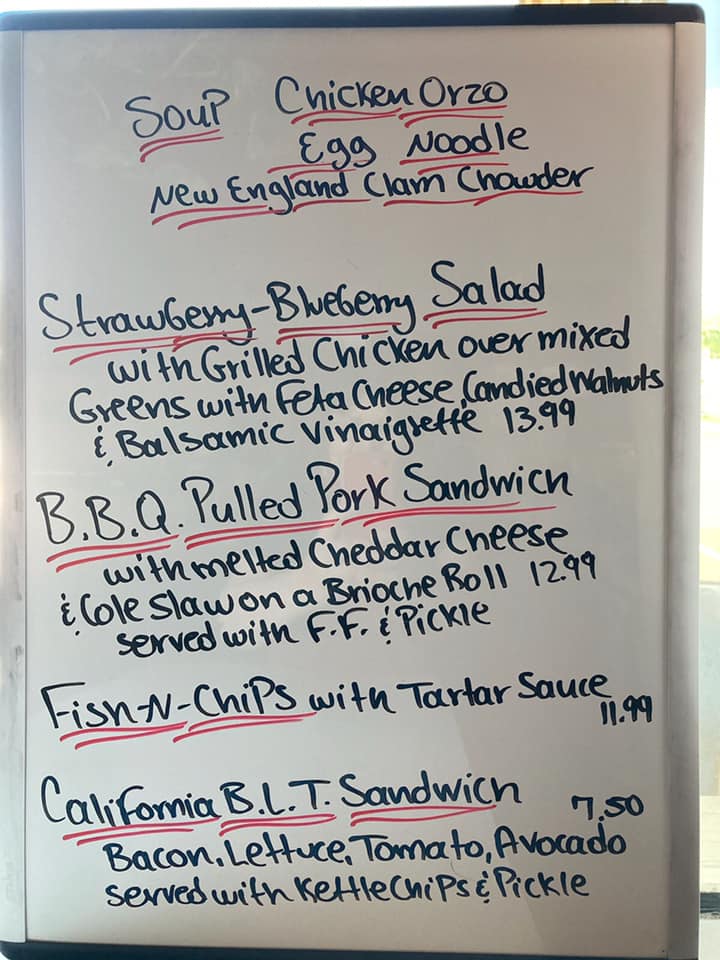 Soup Chicken Orzo
Egg Noodle
New England Clam Chowder
Strawberry-Blueberry Salad
with Grilled Chicken over mixed
Greens with Feta Cheese, Candied Walnuts
& Balsamic Vinaigrette 13.99
B.B.Q. Pulled Pork Sandwich
with melted Cheddar Cheese
& Cole Slaw on a Brioche Roll 12.99
served with F.F. & Pickle
Fish-N-Chips with Tartar Sauce
11.99
California B.L.T. Sandwich 7.50
Bacon, Lettuce, Tomato, Avocado
served with Kettle Chips & Pickle